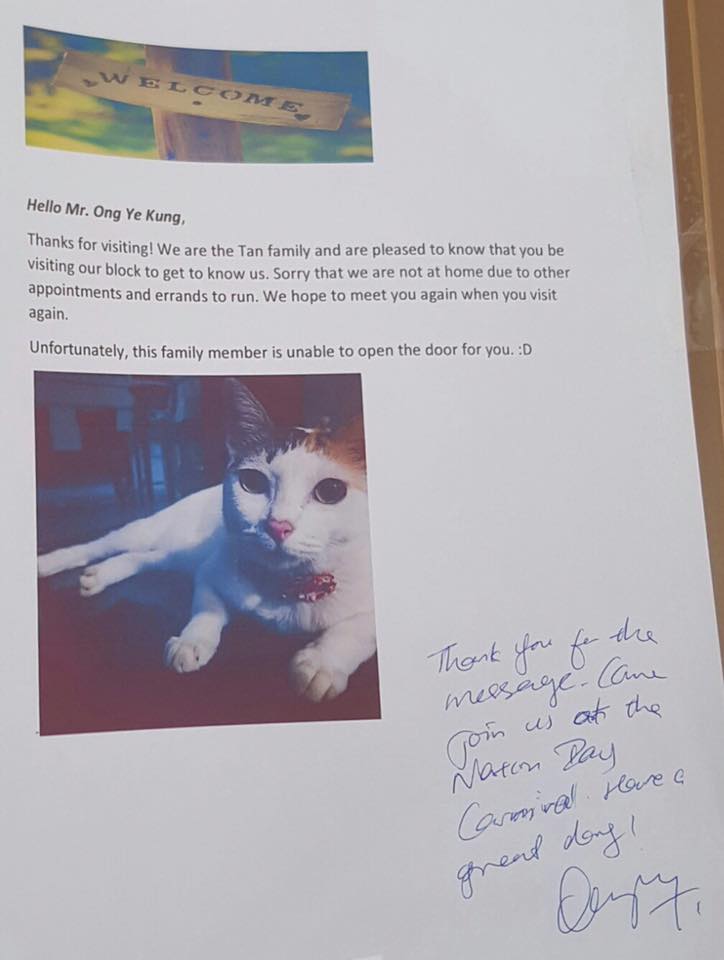 WELCOME
Hello Mr. Ong Ye Kung,
Thanks for visiting! We are the Tan family and are pleased to know that you be
visiting our block to get to know us. Sorry that we are not at home due to other
appointments and errands to run. We hope to meet you again when you visit
again.
Unfortunately, this family member is unable to open the door for you. :D
Thank you for the
message. Come
join us at the
Nation Day
Carnival. Have a
great day!